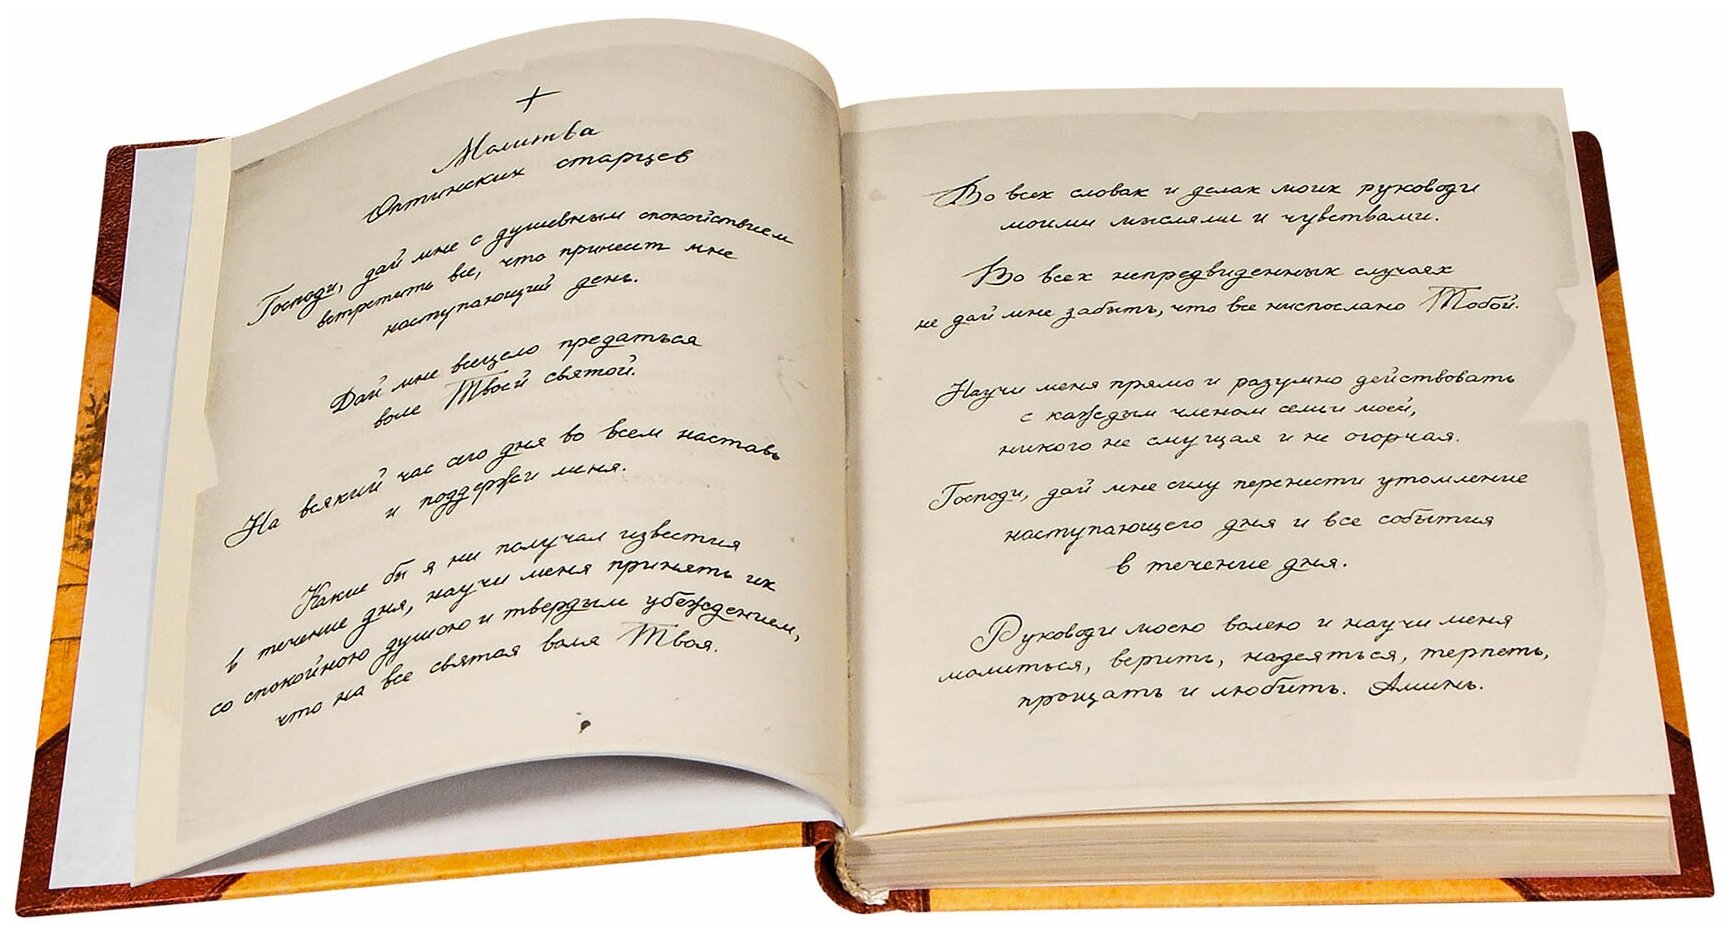 Молитва
Оптинских старцев
Господи, дай мне с душевным спокойствием
встретить все, что принесит мне
наступающий день.
Дай мне всецело предаться
воле Твоей святой.
На всякий час сего дня во всем наставь
и поддержи меня.
Какие бы я ни получал известия
в течение дня, научи меня принять их
со спокойною душою и твердым убеждением,
что на все святая воля Твоя.
Во всех словах и делах моих руководи
моими мыслями и чувствами.
Во всех непредвиденных случаях
не дай мне забыть, что все ниспослано Тобой.
Научи меня прямо и разумно действовать
с каждым членом семьи моей,
никого не смущая и не огорчая.
Господи, дай мне силу перенести утомление
наступающего дня и все события
в течение дня.
Руководи моею волею и научи меня
молиться, верить, надеяться, терпеть,
прощать и любить. Аминь.